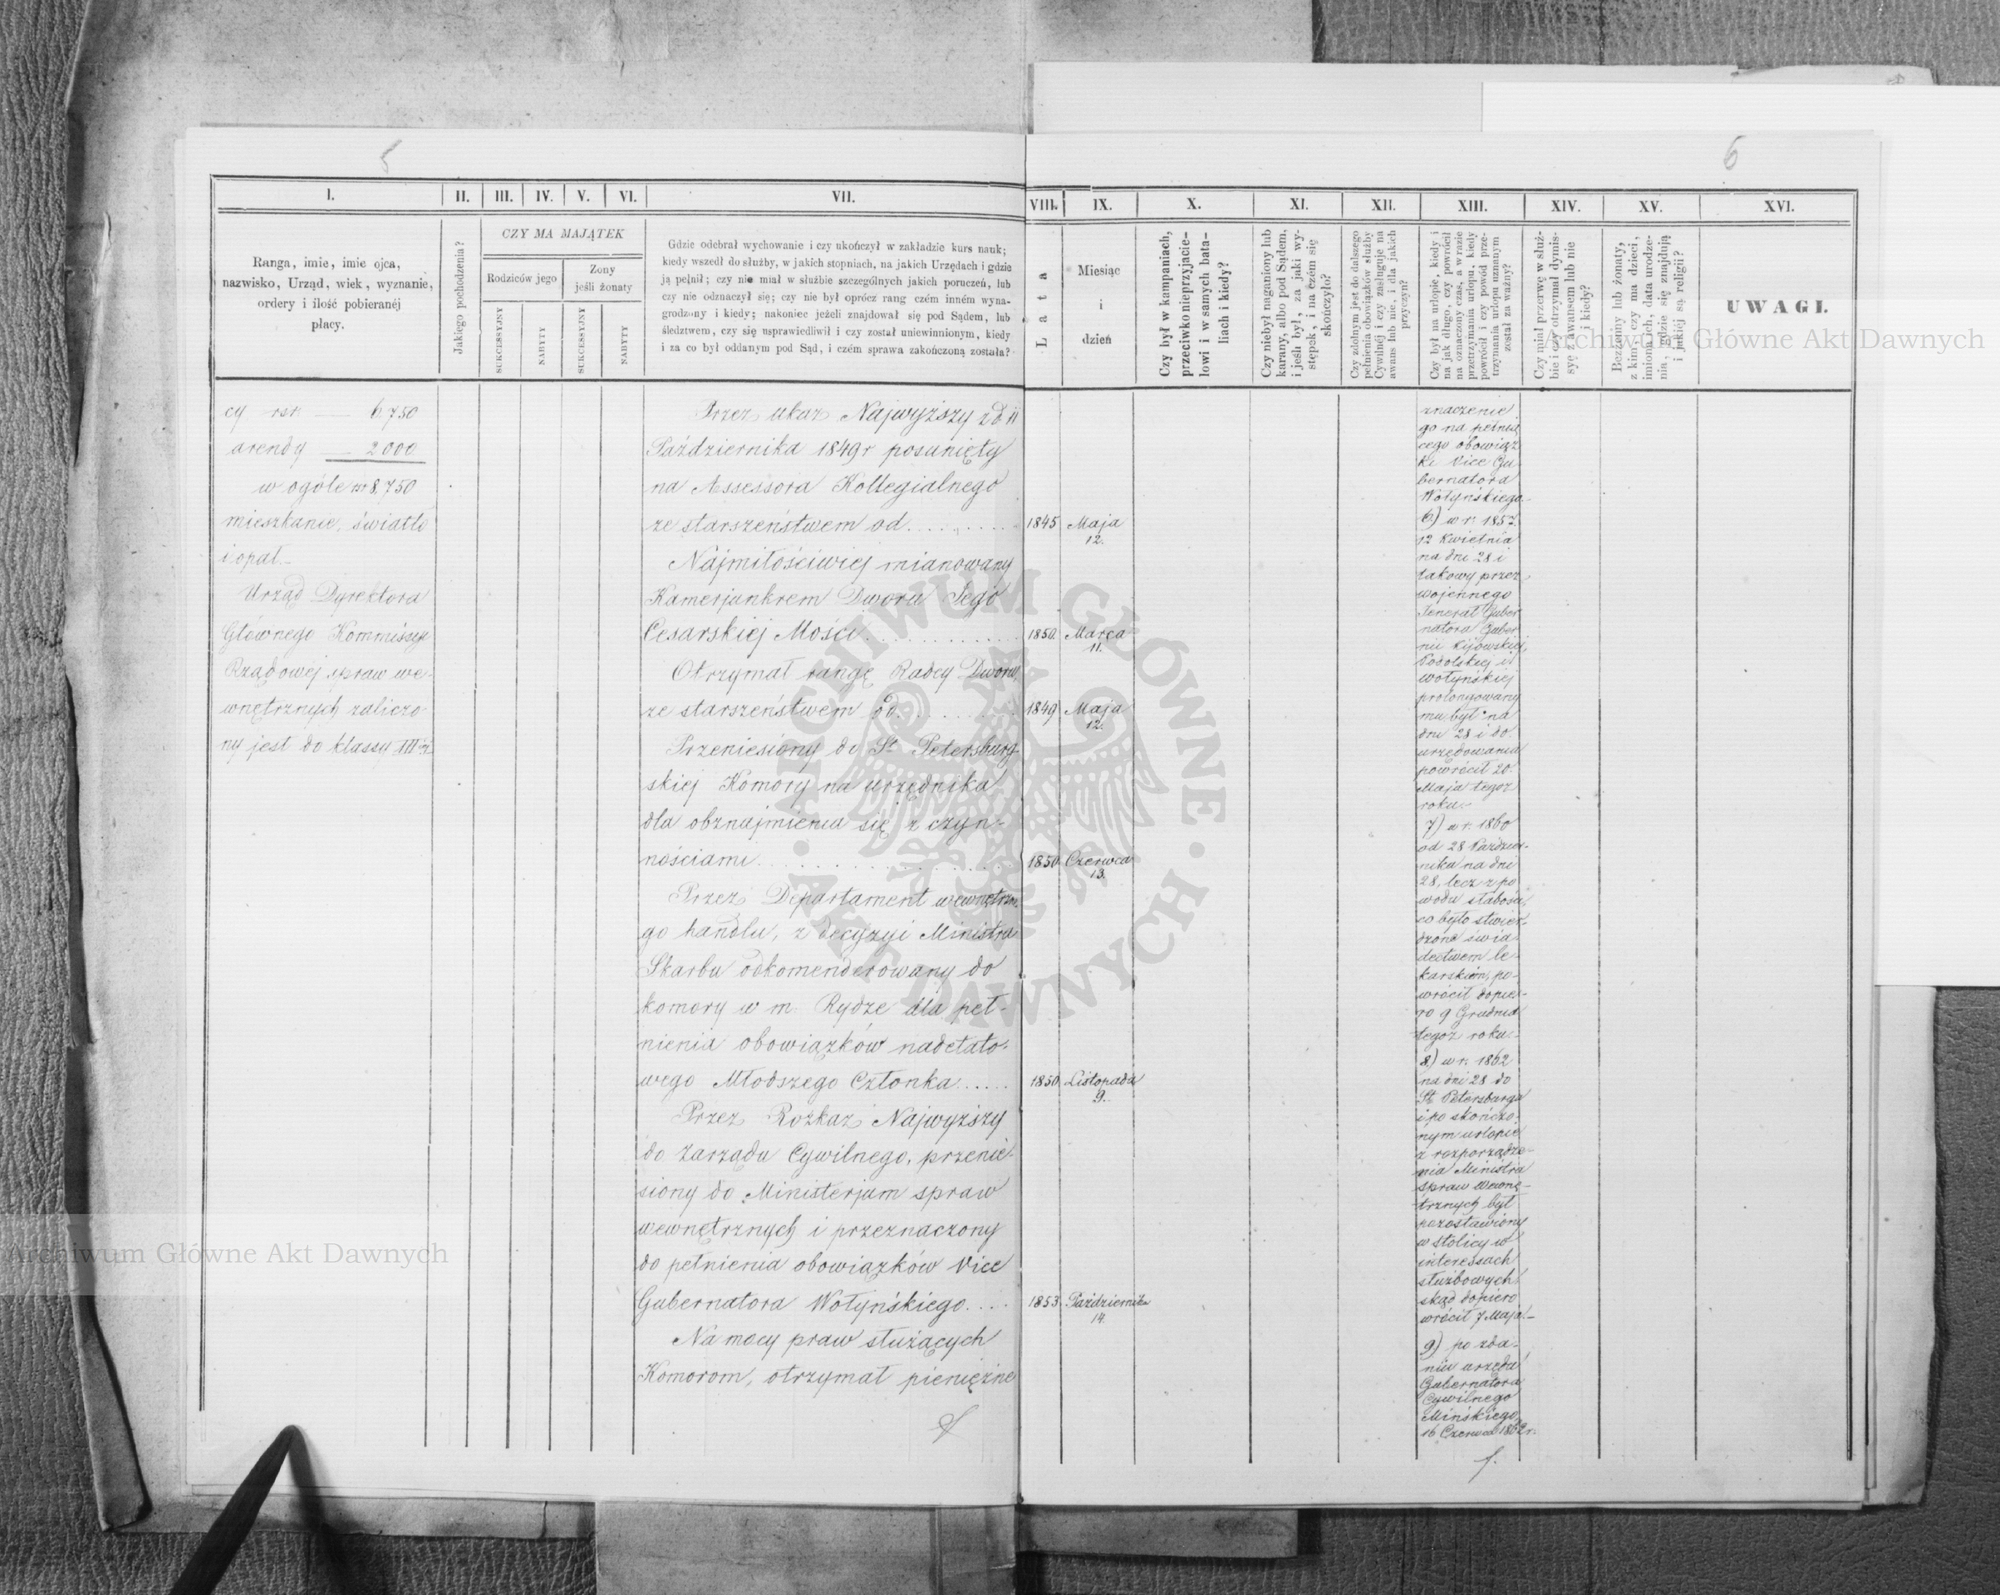 5
6
I.
II.
III.
IV.
V.
VI.
VII.
VIII.
IX.
X.
XI.
XII.
XIII.
XIV.
XV.
XVI.
Ranga, imie, imie ojca,
nazwisko, Urząd, wiek, wyznanie,
ordery i ilość pobieranéj
płacy.
Jakiego pochodzenia?
CZY MA MAJĄTEK
Rodziców jego
Żony
jeśli żonaty
SUKCESSYJNY
NABYTY
SUKCESSYJNY
NABYTY
Gdzie odebrał wychowanie i czy ukończył w zakładzie kurs nauk;
kiedy wszedł do służby, w jakich stopniach, na jakich Urzędach i gdzie
ją pełnił; czy nie miał w służbie szczególnych jakich poruczeń, lub
czy nie odznaczył się; czy nie był oprócz rang czém inném wyna-
grodzony i kiedy; nakoniec jeżeli znajdował się pod Sądem, lub
śledztwem, czy się usprawiedliwił i czy został uniewinnionym, kiedy
i za co był oddanym pod Sąd, i czém sprawa zakończoną została?
Lata
Miesiąc
i
dzień
Czy był w kampaniach,
przeciwko nieprzyjacie-
lowi i w samych bata-
liach i kiedy?
Czy niebył naganiony lub
karany, albo pod Sądem,
i jeśli był, za jaki wy-
stępek, i na czém się
skończyło?
Czy zdolnym jest do dalszego
pełnienia obowiązków służby
Cywilnéj i czy zasługuje na
awans lub nie, i dla jakich
przyczyn?
Czy był na urlopie, kiedy i
na jak długo, czy powrócił
na oznaczony czas, a w razie
przetrzymania urlopu, kiedy
powrócił i czy powód prze-
trzymania urlopu uznanym
został za ważny?
Czy miał przerwę w służ-
bie i czy otrzymał dymis-
syę z awansem lub nie
i kiedy?
Bezżenny lub żonaty,
z kim, czy ma dzieci,
imiona ich, data urodze-
nia, gdzie się znajdują
i jakiéj są religii?
UWAGI.
cy rsr. — 6,750
arendy — 2000
w ogóle rsr 8,750
mieszkanie, światło
i opał.
Urząd Dyrektora
Głównego Kommissyi
Rządowej spraw we-
wnętrznych zaliczo-
ny jest do klassy III
Przez ukaz Najwyższy z d 11
Października 1849 r posunięty
na Assessora Kollegialnego
ze starszeństwem od . . . . . . . 1845 Maja 12.
Najmiłościwiej mianowany
Kamerjunkrem Dworu Jego
Cesarskiej Mości . . . . . . . 1850 Marca 11.
Otrzymał rangę Radcy Dworu,
ze starszeństwem od . . . . . . . 1849 Maja 12.
Przeniesiony do St Petersburg-
skiej Komory na urzędnika
dla obznajmienia się z czyn-
nościami . . . . . . . 1850 Czerwca 13.
Przez Departament wewnętrzne-
go handlu, z decyzyi Ministra
Skarbu odkomenderowany do
komory w m. Rydze dla peł-
nienia obowiązków nadetato-
wego Młodszego Członka . . . . . 1850 Listopada 9.
Przez Rozkaz Najwyższy
do zarządu Cywilnego, przenie-
siony do Ministerjum spraw
wewnętrznych i przeznaczony
do pełnienia obowiązków Vice
Gubernatora Wołyńskiego . . . . 1853 Października 14.
Na mocy praw służących
Komorom, otrzymał pieniężne
znaczenie
go na pełnią
cego obowiąz
ki Vice Gu
bernatora
Wołyńskiego
6) w r. 1857
12 Kwietnia
na dni 28 i
takowy przez
wojennego
Jenerał Guber
natora Guber
nii Kijowskiej,
Podolskiej i
Wołyńskiej
prolongowany
mu był na
dni 28 i do
urzędowania
powrócił 20
Maja tegoż
roku.
7) w r. 1860
od 28 Paździer-
nika na dni
28, lecz z po
wodu słabości
co było stwier
dzone świa
dectwem le-
karskiém, po-
wrócił dopie-
ro 9 Grudnia
tegoż roku.
8) w r. 1862
na dni 28 do
St Petersburga
i po skończo-
nym urlopie
z rozporządze-
nia Ministra
spraw wewnę-
trznych był
pozostawiony
w stolicy w
interessach
służbowych
skąd dopiero
wrócił 7 Maja
9) po zda-
niu urzędu
Gubernatora
Cywilnego
Mińskiego,
16 Czerwca 1862 r.
ARCHIWUM GŁÓWNE AKT DAWNYCH
Archiwum Główne Akt Dawnych
Archiwum Główne Akt Dawnych